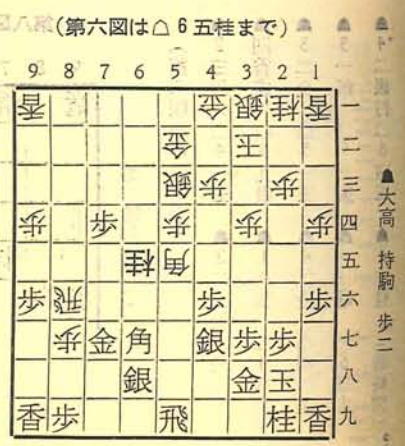 (第六図は△6五桂まで)
9 8 7 6 5 4 3 2 1
香 金 銀 桂 香 一
金 王 二
銀 歩 歩 三
歩 歩 歩 歩 歩 四
桂 角 五
歩 飛 歩 歩 六
歩 金 角 銀 歩 歩 七
銀 金 玉 八
香 歩 飛 桂 香 九
☗大高 持駒 歩二